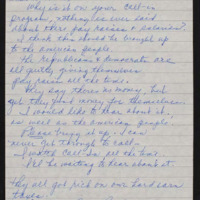 Why is it on your call-in
program, nothing is ever said
about their pay raises & pensions?
I think this should be brought up
to the american people.
The republicans & democrats are
all quietly giving themselves
pay raises all the time.
They say there's no money, but
get they find money for themselves.
I would like to hear about it,
as well as the american people.
Please bring it up - I can
never get through to call -
I watch Call-In all the time.
I'll be waiting to hear about it.
They all get rich on our hard earn
taxes.